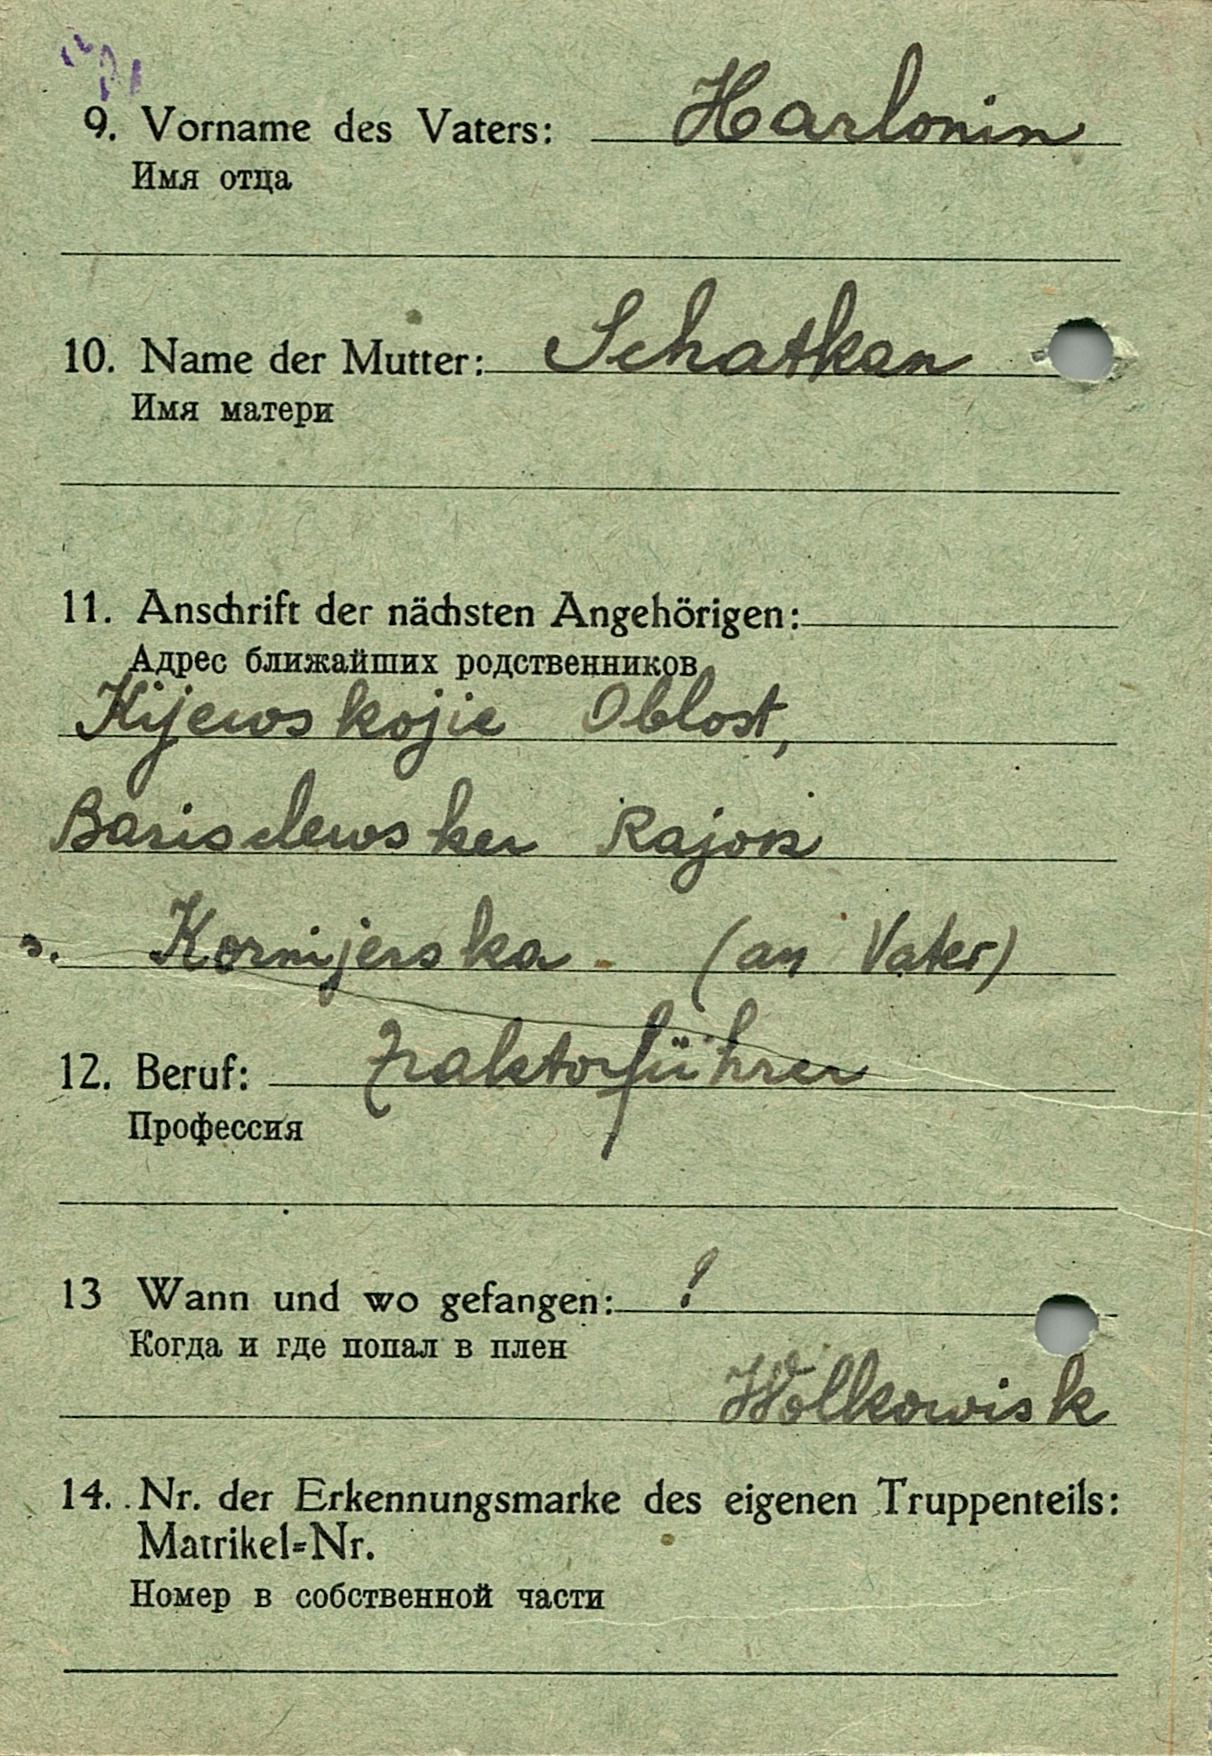 9. Vorname des Vaters: Harlonin
Имя отца
10. Name der Mutter: Schatkan
Имя матери
11. Anschrift der nächsten Angehörigen:
Адрес ближайших родственников
Kijewskojie Oblost,
Rajon
(an Vater)
12. Beruf: Traktorführer
Профессия
13 Wann und wo gefangen: !
Когда и где попал в плен
Wolkowisk
14. Nr. der Erkennungsmarke des eigenen Truppenteils:
Matrikel=Nr.
Номер в собственной части